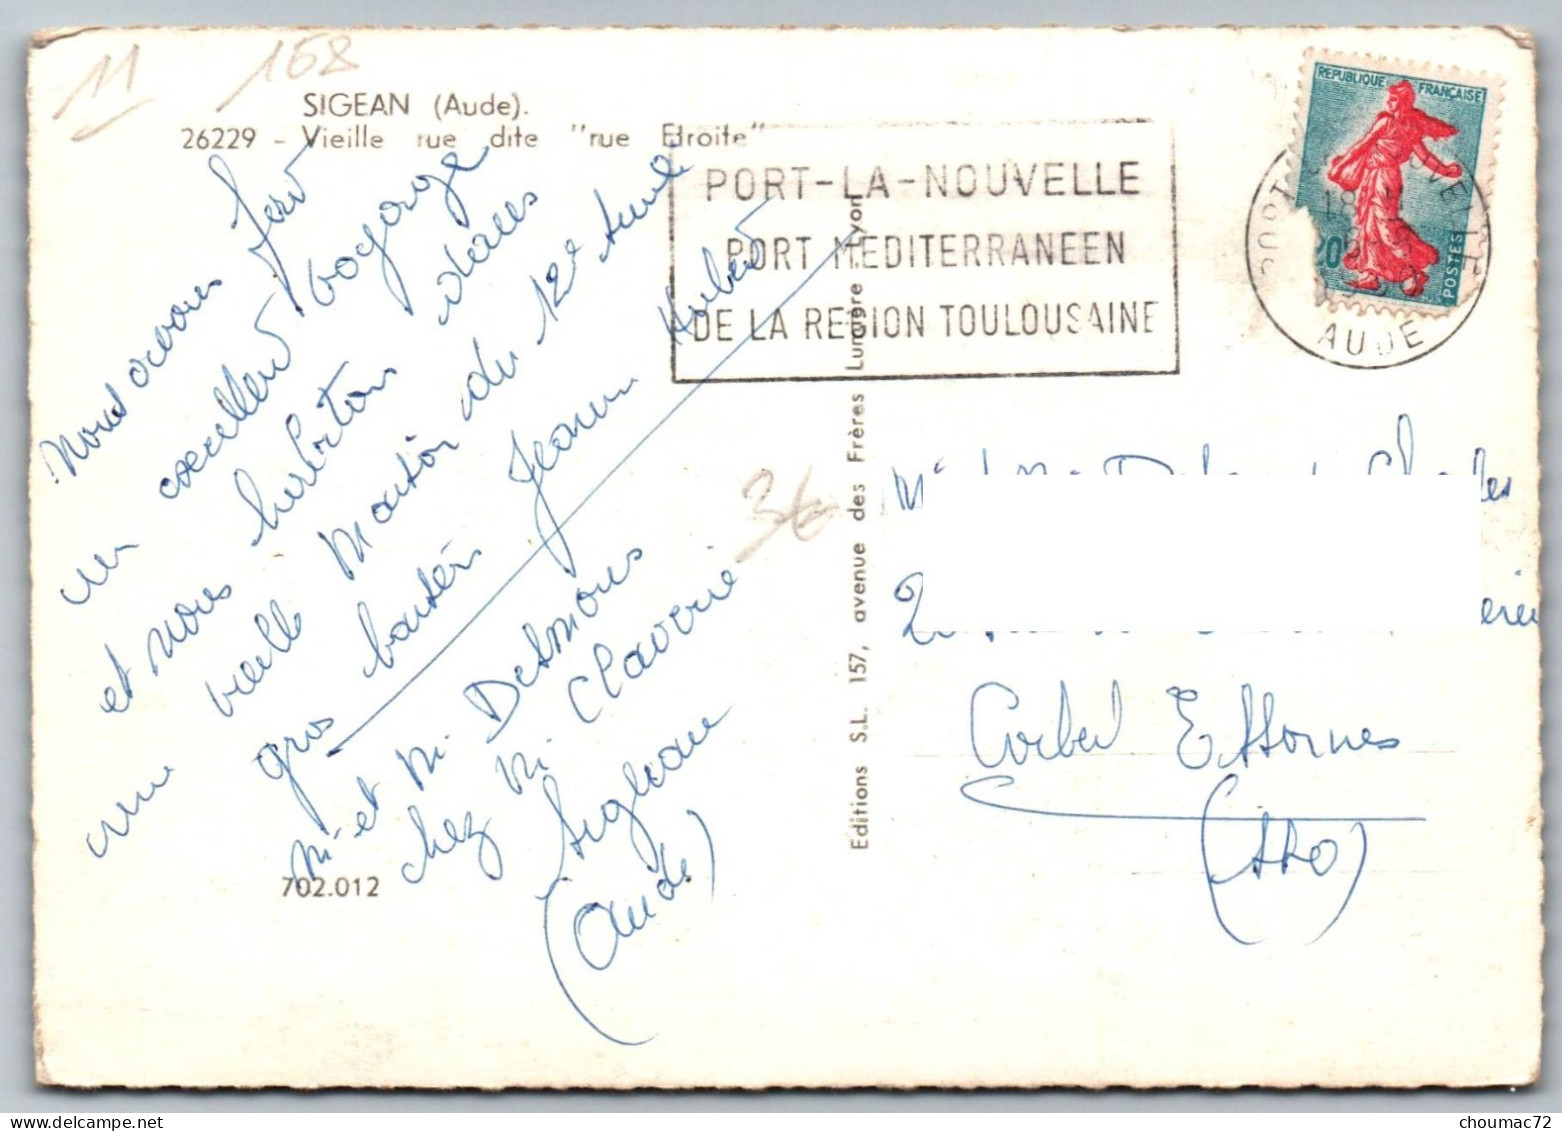 11
168
SIGEAN (Aude).
26229 - Vieille rue dite "rue Etroite"
Nous avons fait
un excellent voyage
et nous habitons dans
une vieille Maison du 12e siècle
gros baisers Jeanne Hubert
M. et M. Desmons
chez M. Claverie
Sigean
(Aude)
702.012
3€
Editions S.L. 157, avenue des Frères Lumière Lyon
PORT-LA-NOUVELLE
PORT MEDITERRANEEN
DE LA REGION TOULOUSAINE
REPUBLIQUE FRANÇAISE
0,20
POSTES
18
AUDE
Corbeil Essonnes
(S&O)
choumac72